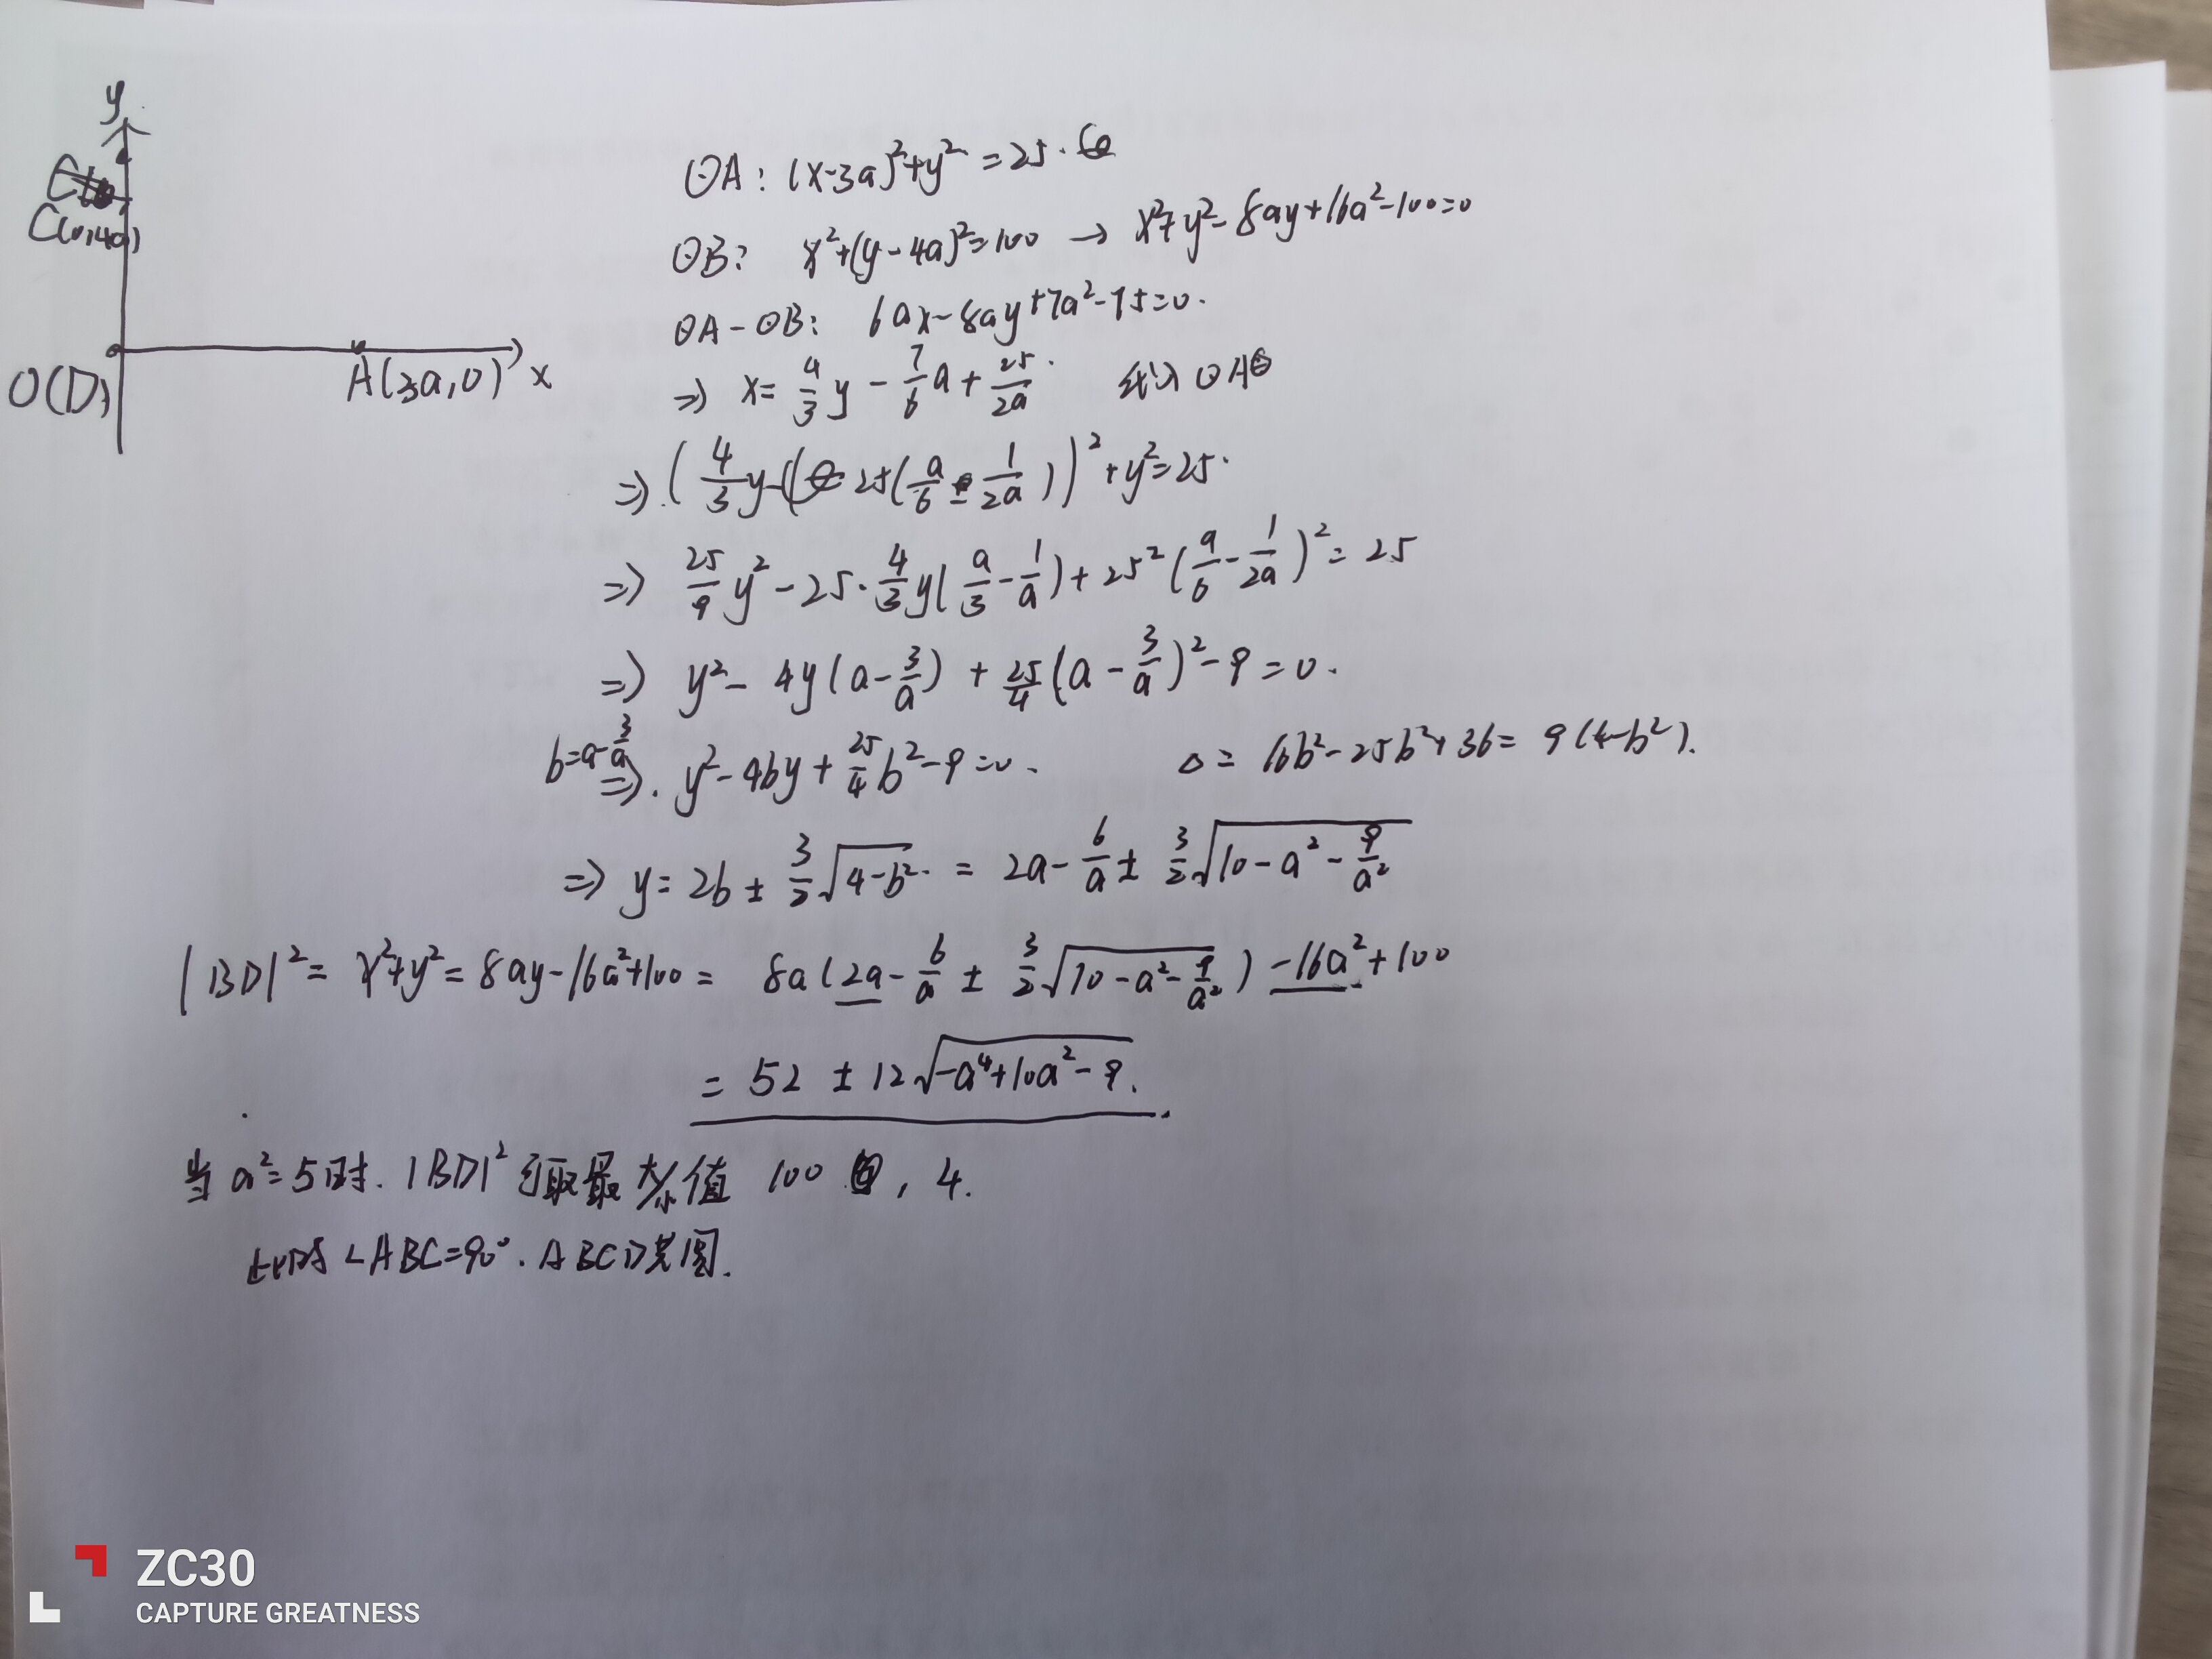 y
C(0,4a)
O(D)
A(3a,0)
x
⊙A: (x-3a)²+y²=25.
⊙B: x²+(y-4a)²=100 → x²+y²-8ay+16a²-100=0
⊙A-⊙B: 6ax-8ay+7a²-75=0.
⇒ x=4/3y-7/6a+25/2a. 代入⊙A
⇒ (4/3y-25(a/6-1/2a))²+y²=25.
⇒ 25/9y²-25·4/3y(a/3-1/a)+25²(a/6-1/2a)²=25
⇒ y²-4y(a-3/a)+25/4(a-3/a)²-9=0.
b=a-3/a ⇒. y²-4by+25/4b²-9=0. Δ=16b²-25b²+36=9(4-b²).
⇒ y=2b±3/2√(4-b²)=2a-6/a±3/2√(10-a²-9/a²)
|BD|²=x²+y²=8ay-16a²+100=8a(2a-6/a±3/2√(10-a²-9/a²))-16a²+100
=52±12√(-a⁴+10a²-9).
当a²=5时.|BD|²可取最大/小值 100, 4.
此时∠ABC=90°.ABCD共圆.
ZC30
CAPTURE GREATNESS